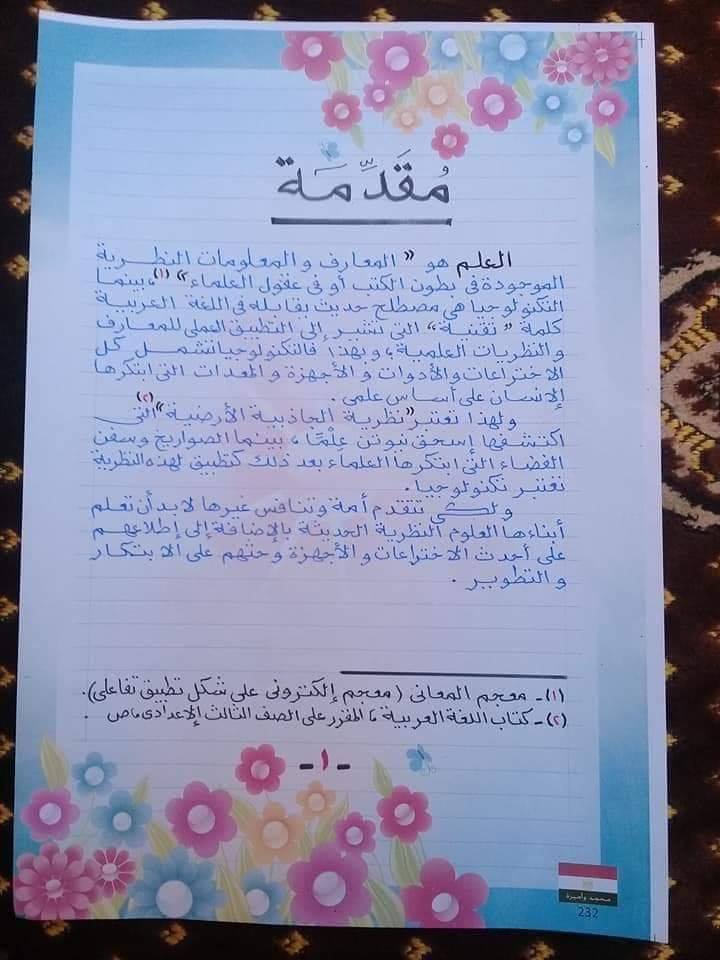 مُقَدِّمَة
العلم هو « المعارف والمعلومات النظرية
الموجودة في بطون الكتب أو في عقول العلماء » (١) ، بينما
التكنولوجيا هي مصطلح حديث يقابله في اللغة العربية
كلمة « تقنية » التي تشير إلى التطبيق العملي للمعارف
والنظريات العلمية ، وبهذا فالتكنولوجيا تشمل كل
الاختراعات والأدوات والأجهزة والمعدات التي ابتكرها
الإنسان على أساس علمى .
ولهذا تعتبر « نظرية الجاذبية الأرضية » (٢) التي
اكتشفها إسحق نيوتن عِلْمًا ، بينما الصواريخ وسفن
الفضاء التي ابتكرها العلماء بعد ذلك كتطبيق لهذه النظرية
تعتبر تكنولوجيا .
ولكى تتقدم أمة وتنافس غيرها لابد أن تعلم
أبناءها العلوم النظرية الحديثة بالإضافة إلى إطلاعهم
على أحدث الاختراعات والأجهزة وحثهم على الابتكار
والتطوير .
(١) - معجم المعانى ( معجم إلكترونى على شكل تطبيق تفاعلى ) .
(٢) - كتاب اللغة العربية ، المقرر على الصف الثالث الإعدادى ، ص .
- ١ -
محمد وأميرة
232